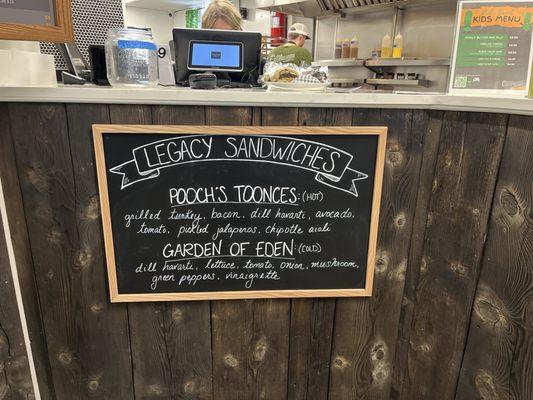 KIDS MENU
LEGACY SANDWICHES
POOCH'S TOONCES: (HOT)
grilled turkey, bacon, dill havarti, avocado,
tomato, pickled jalapeños, chipotle aioli
GARDEN OF EDEN: (COLD)
dill havarti, lettuce, tomato, onion, mushroom,
green peppers, vinaigrette